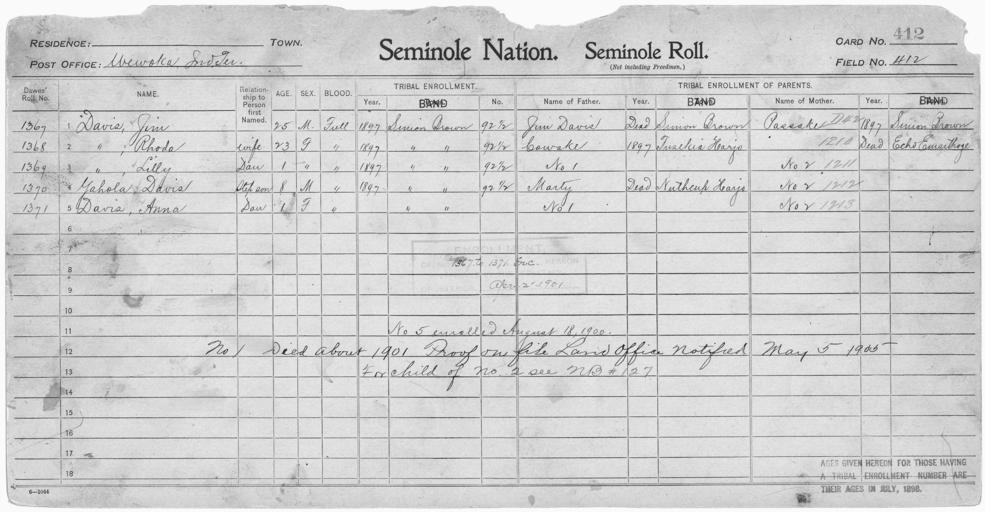 RESIDENCE: TOWN.
POST OFFICE: Wewoka Ind Ter.
Seminole Nation. Seminole Roll.
(Not including Freedmen.)
CARD NO. 412
FIELD NO. 412
Dawes' Roll No. NAME. Relationship to Person first Named. AGE. SEX. BLOOD. TRIBAL ENROLLMENT. TRIBAL ENROLLMENT OF PARENTS.
Year. BAND No. Name of Father. Year. BAND Name of Mother. Year. BAND
1367 1 Davis, Jim 25 M. Full 1897 Simon Brown 92 1/2 Jim Davis Dead Simon Brown Passake 1897 Simon Brown
1368 2 " , Rhoda wife 23 F " 1897 " " 92 1/2 Cowake 1897 Tusekia Harjo 1210 Dead Echo
1369 3 " , Lilly Dau 1 " " 1897 " " 92 1/2 No 1 No 2 1211
1370 4 Gahola Davis Step son 8 M " 1897 " " 92 1/2 Marty Dead Nuthcup Harjo No 2 1212
1371 5 Davis, Anna Dau 1 F " " " No 1 No 2 1213
6
7
ENROLLMENT
8 1367 to 1371 Inc.
9 Apr 2 1901
10
11 No 5 enrolled August 18, 1900.
12 No 1 Died about 1901 Proof on file Land Office notified May 5 1905
13 For child of No. 2 see NB # 127
14
15
16
17
18
AGES GIVEN HEREON FOR THOSE HAVING
A TRIBAL ENROLLMENT NUMBER ARE
THEIR AGES IN JULY, 1898.
6—2066